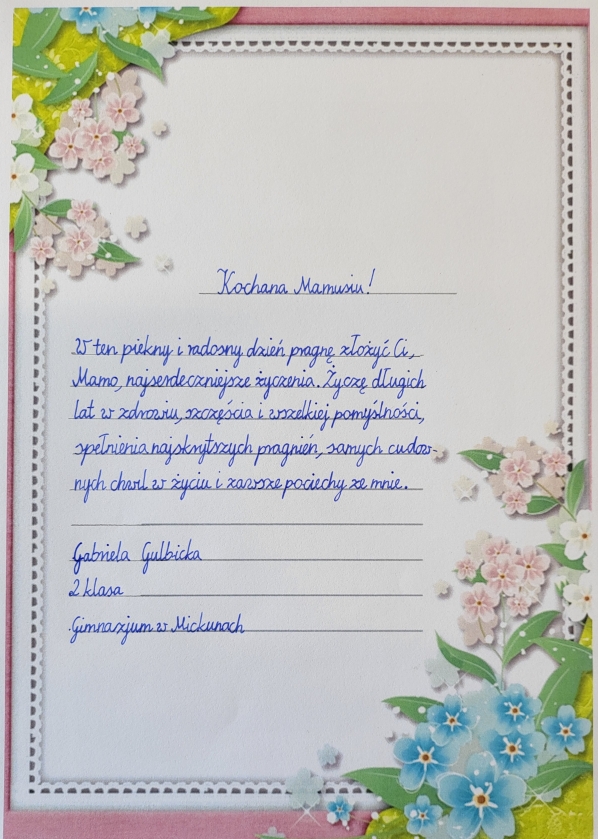 Kochana Mamusiu!
W ten piękny i radosny dzień pragnę złożyć Ci,
Mamo, najserdeczniejsze życzenia. Życzę długich
lat w zdrowiu, szczęścia i wszelkiej pomyślności,
spełnienia najskrytszych pragnień, samych cudow-
nych chwil w życiu i zawsze pociechy ze mnie.
Gabriela Gulbicka
2 klasa
Gimnazjum w Mickunach